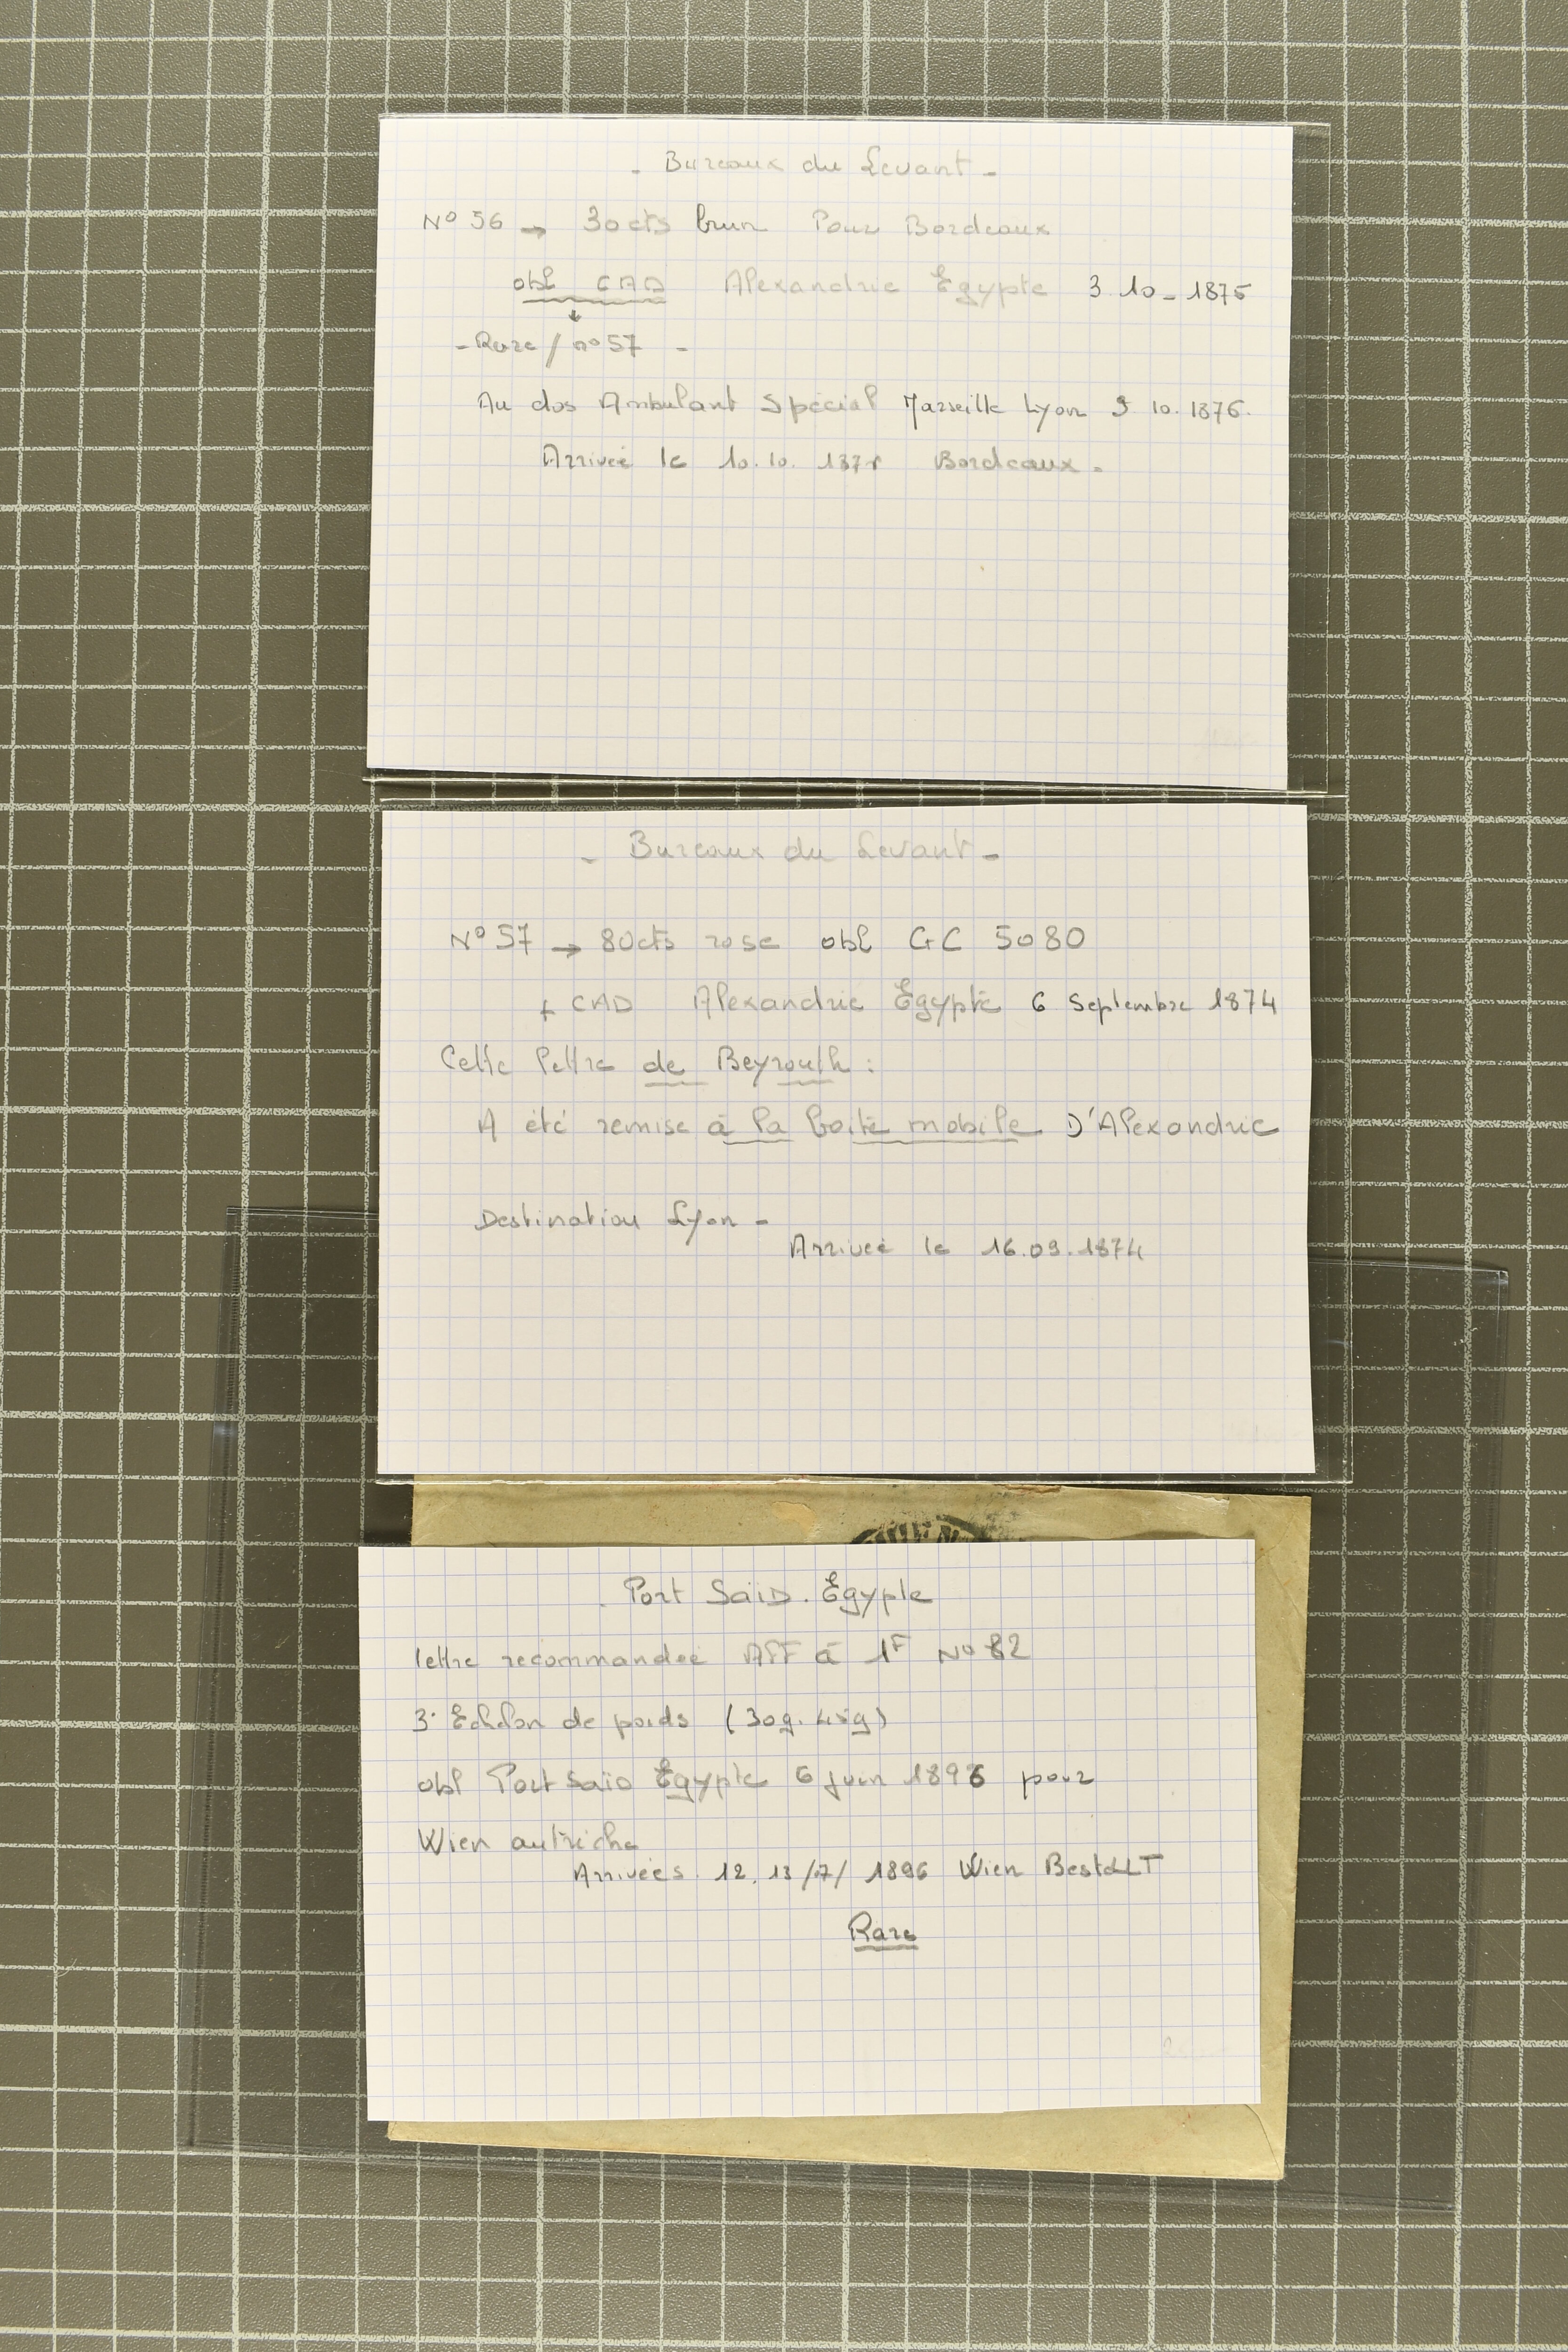 - Bureaux du Levant -
N° 56 → 30cts brun Pour Bordeaux
obl CAD Alexandrie Egypte 3 10 - 1875
↓
- Rare / n° 57 -
Au dos Ambulant Spécial Marseille Lyon 9 10. 1876.
Arrivée le 10.10. Bordeaux -
- Bureaux du Levant -
N° 57 → 80cts rose obl GC 5080
+ CAD Alexandrie Egypte 6 Septembre 1874
Cette lettre de Beyrouth :
A été remise à la boite mobile D'Alexandrie
Destination Lyon -
Arrivée le 16.09.1874
Port SaïD. Egypte
lettre recommandée Aff à 1F N° 82
3° Echelon de poids (30g. 45g)
obl Port Saïd Egypte 6 juin 1896 pour
Wien autriche
Arrivées. 12. 13/7/ 1896 Wien BesteLLT
Rare